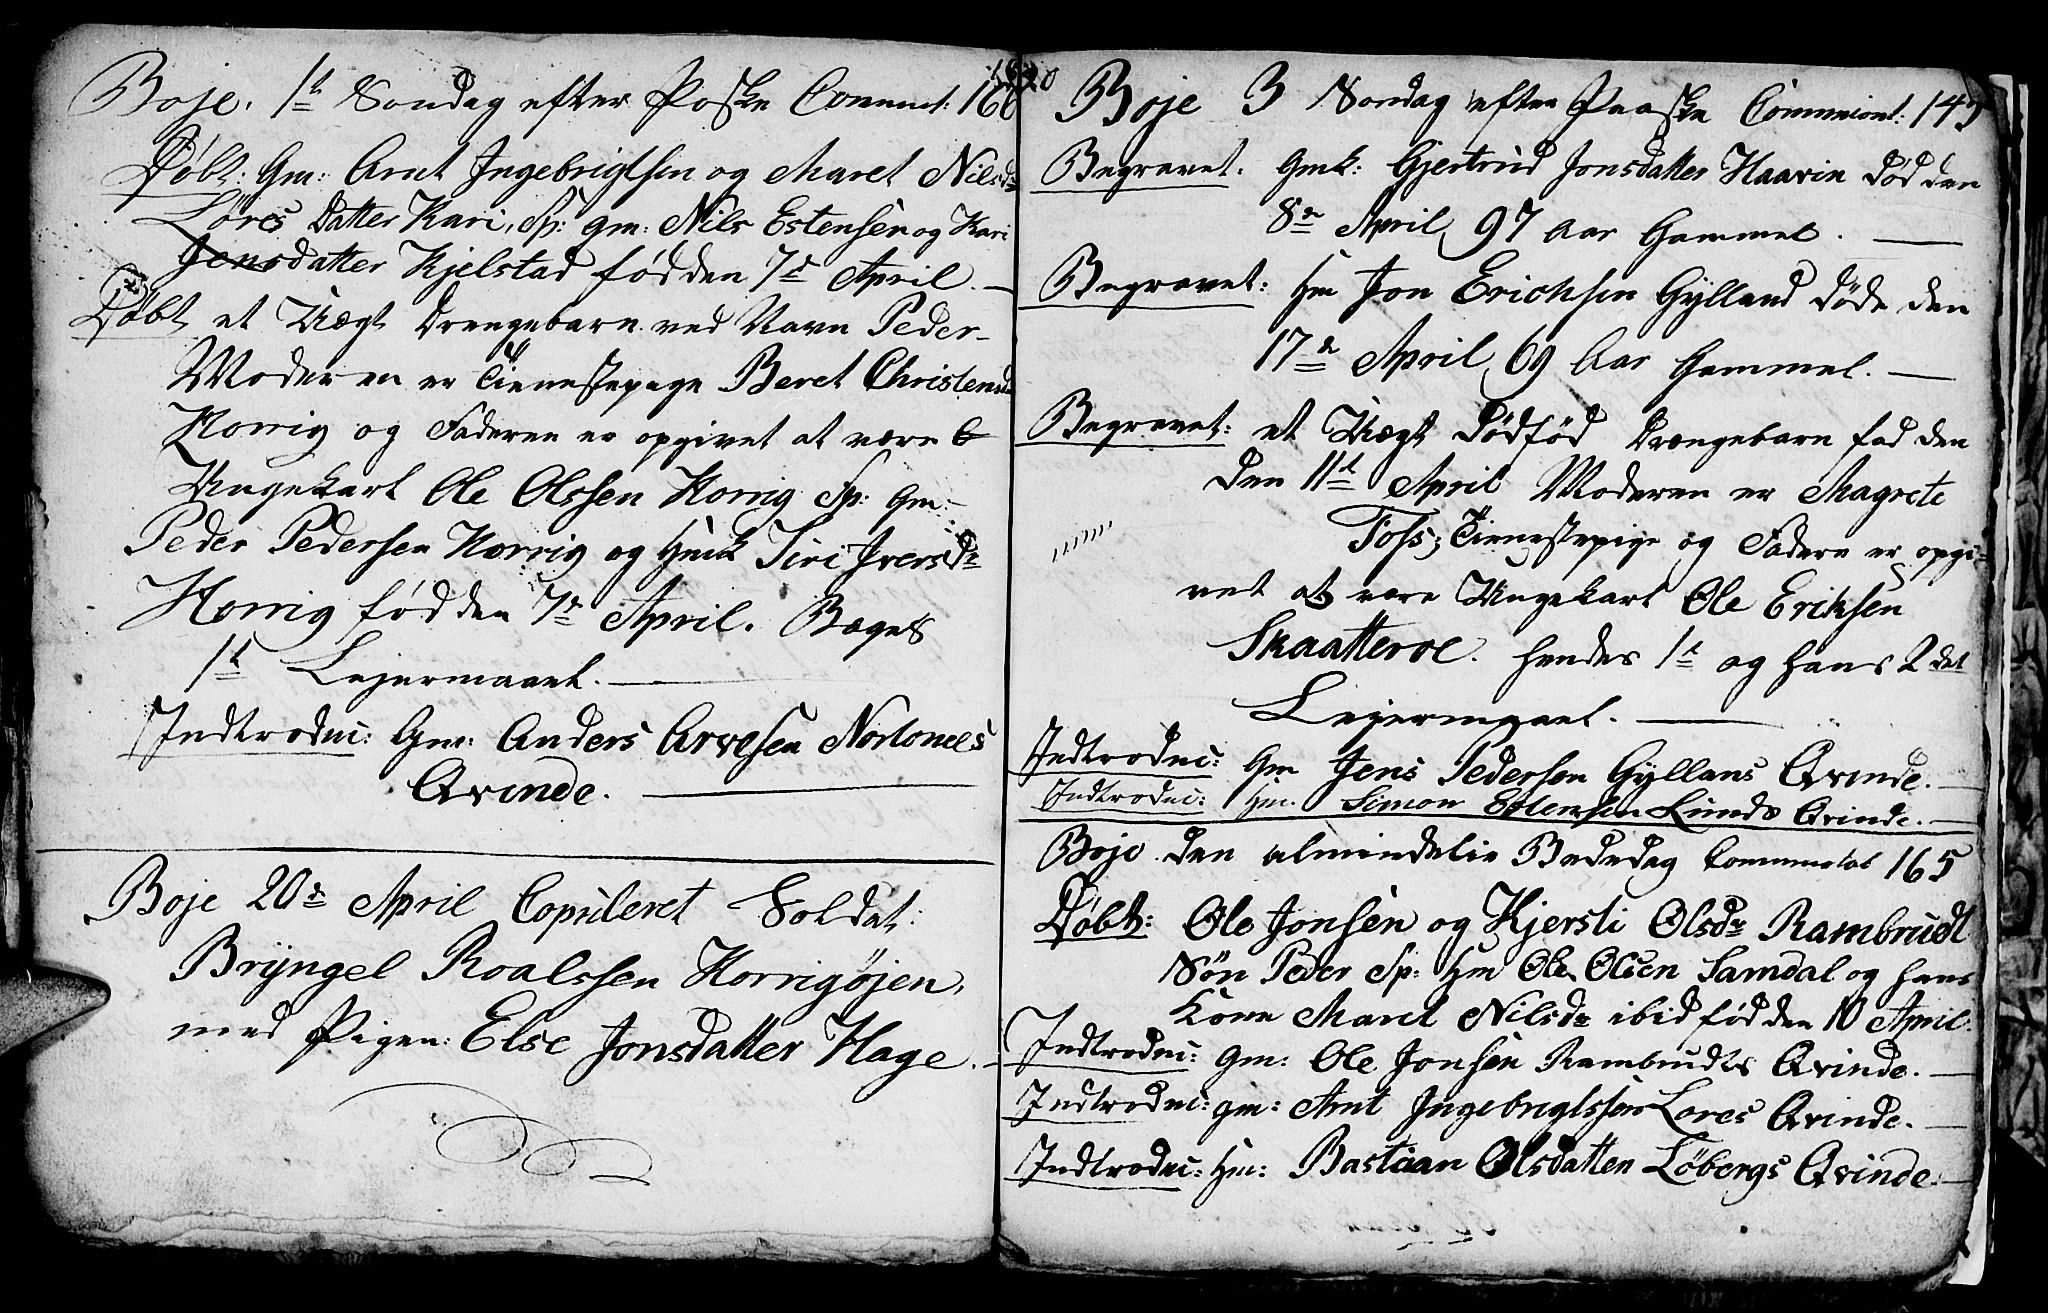 Boje. 1t Søndag efter Poske Commet: 166
Døbt: Gm: Arnt Ingebrigtsen og Maret Nilsd
Løres Datter Kari, Sp: gm: Nils Estensen og Kari
Jonsdatter Kjelstad fød den 7d April.
Døbt et Uægt Drengebarn ved Navn Peder
Moderen er Tienestepige Beret Christensd
Horrig og Faderen er opgivet at være
Ungekarl Ole Olssen Horrig Sp: Gm:
Peder Pedersen Horrig og Hmk Siri Iversdr
Horrig fød den 7de April. Bæges
1t Lejermaael.
Indtroduc: Gm: Anders Arvesen Nortones
Qvinde.
Boje 20de April Copuleret Soldat:
Bryngel Roalssen Horrigøjen,
med Pigen: Else Jonsdatter Hage.
1820
Boje 3 Søndag efter Paaske Commeiont: 145
Begravet. Gmk: Gjertrud Jonsdatter Haavin død den
8de April, 97 Aar Gammel.
Begravet: Hm Jon Erichsen Gylland døde den
17de April, 69 Aar Gammel.
Begravet: et Uægt Dødfød Drengebarn fød den
den 11t April Moderen er Magrete
Tofs; Tienestepige og Fadern er opgi-
vet at være Ungekarl Ole Eriksen
Skaatteroe. hendes 1t og hans 2det
Lejermaael.
Indtroduc: Gm Jens Pedersen Gyllans Qvinde.
Indtroduc: Hm. Simon Estensen Lunds Qvinde.
Boje den almindelie Bededag Commotal 165
Døbt: Ole Jonsen og Kjersti Olsdr Rambrudt
Søn Peder Sp: Hm Ole Olsen Samdal og hans
Kone Maret Nilsdr ibid fød den 10 April.
Indtroduc: Gm: Ole Jonsen Rambrudts Qvinde.
Indtroduc: gm: Arnt Ingebrigtssøn Lores Qvinde.
Indtroduc: Hm: Bastian Olsdatten Løbergs Qvinde.